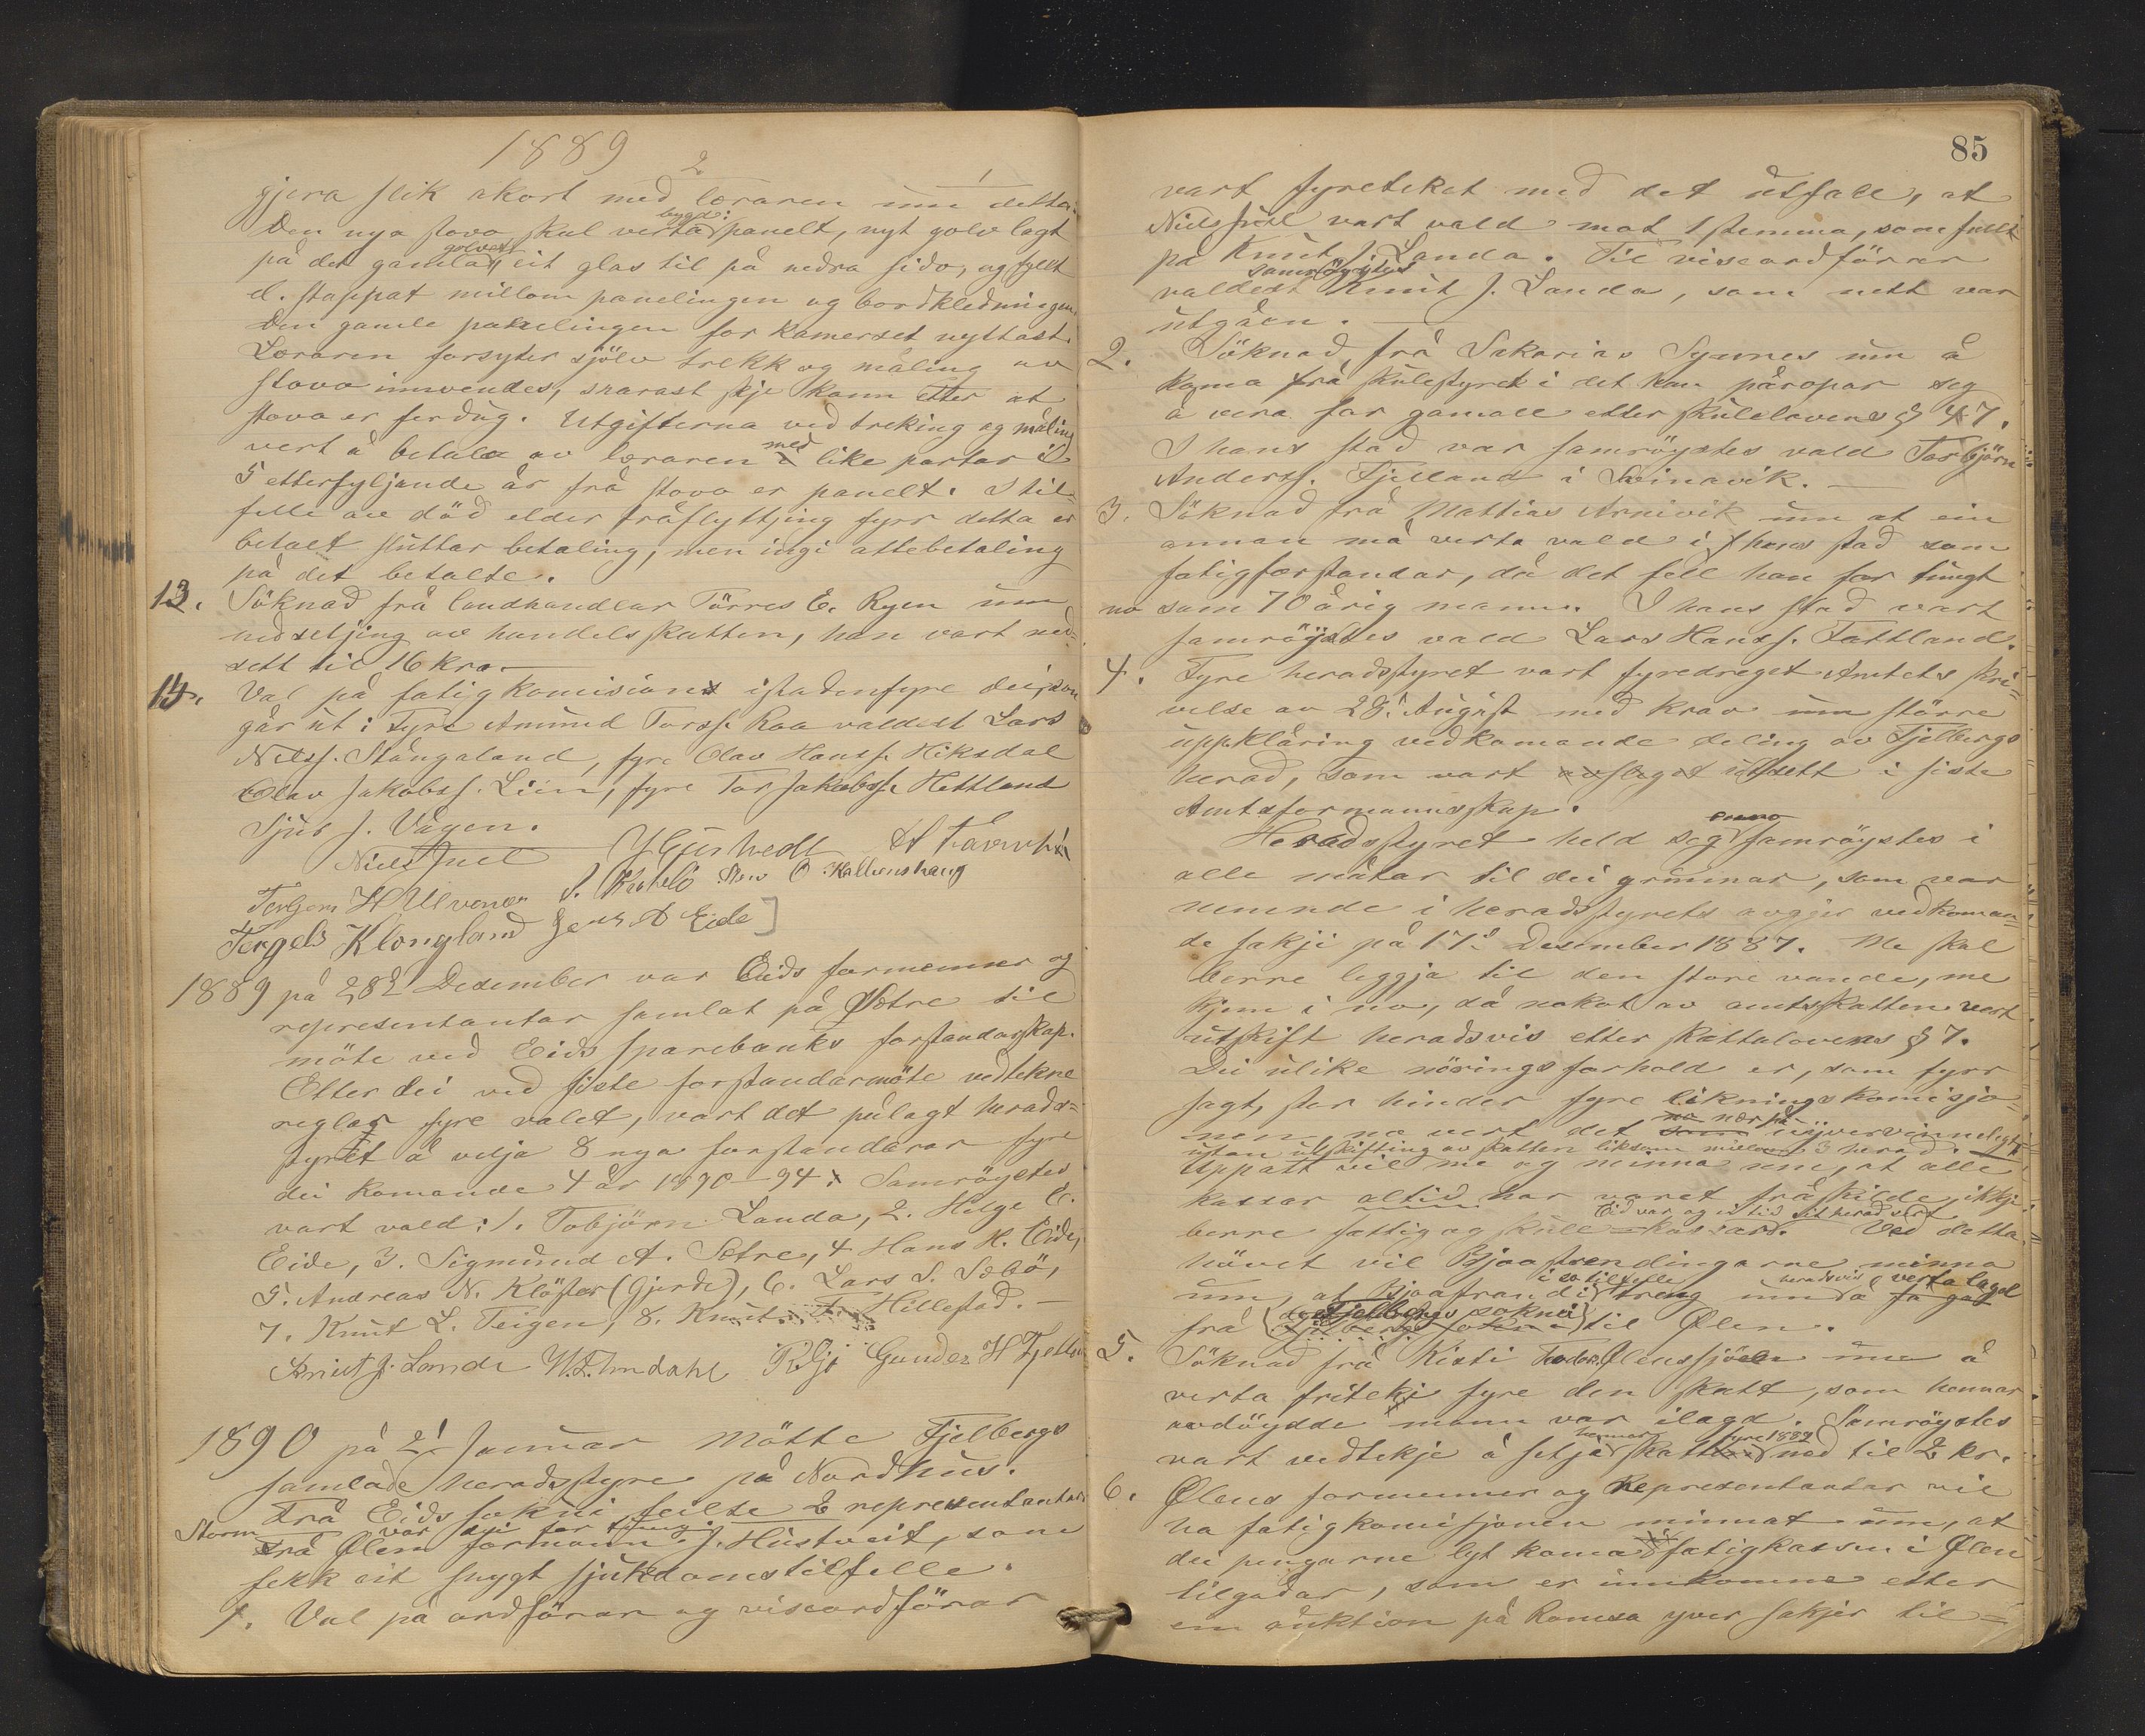 1889
2
gjera slik akort med læraren um detta.
Den nya stova skal verta bygd: panelt, nyt golv lagt
på det gamla golvet, eit glas til på nedra sido, og fyllt
el. stappat millom panelingen og bordkledningen.
Den gamle panelingen for kamerset nyttast.
Læraren forsyter sjölv trekk og måling av
stova innvendes, snarast skje kann etter at
stova er ferdug. Utgifterna ved treking og måling
vert å betala av læraren med like partar i
5 etterfyljande år frå stova er panelt. I til-
felle av död elder fråflyttjing fyrr detta er
betalt sluttar betaling, men ingi attebetaling
på det betalte.
13. Söknad frå landhandlar Törres E. Ryen um
nedsetjing av handelsskatten, han vart ned-
sett til 16 kro.
14. Val på fatigkomision istadenfyre dei som
går ut: Fyre Amund Torss. Raa valdest Lars
Nilss. Stångaland, fyre Olav Hanss. Hiksdal
Olav Jakobss. Liin, fyre Tor Jakobss. Hettland
Sjur J. Vågen.
Niels Juel
Torbjörn H Ulvenes S. Kaldheim
Tergels Klongland Jens A Eide
1889 på 28de Desember var Eids formenner og
representantar samlat på Sætre til
möte ved Eids Sparebanks forstandarskap.
Etter dei ved siste forstandarmöte vedtekne
reglar fyre valet, vart det pålagt herads-
styret å velja 8 nya forstandarar fyre
dei komande 4 år 1890-94. Samröystes
vart vald: 1. Tobjörn Landa, 2. Helge E.
Eide, 3. Sigmund A. Sætre, 4 Hans H. Eide,
5. Andreas N. Klöster (Gjerde), 6. Lars S. Sebö,
7. Knut L. Teigen, 8. Knut Hillestad.
Knut J. Landa Gunder H Fjelland
1890 på 2' Januar mötte Fjelbergs
samlade heradsstyre på Nordhus.
Frå Eids sokni feilte 2 representantar
Storm var sjö for tungi
Frå Ølen formann J. Hustveit, som
fekk eit snygt sjukdomstilfelle.
1. Val på ordförar og viseordförar
85
vart fyreteket med det utfall, at
Niels Juel vart vald mot 1 stemma, som fallt
på Knut J. Landa. Til viseordförar
samröystes
valdest Knut J. Landa, som nett var
utgåen.
2. Söknad frå Sakarias Synnes um å
koma frå skulestyret i det han påropar seg
å vera for gamall etter skulelovens § 47.
I hans stad var samröystes vald Torbjörn
Anderss. Fjelland i Leinavik.
3. Söknad frå Mattias Arnivik um at ein
annan må verta vald i hans stad som
fatigforstandar, då det fell han for tungt
no som 70 årig mann. I hans stad vart
samröystes vald Lars Hanss. Tattland.
4. Fyre heradsstyret vart fyredreget Amtets skri-
velse av 28' August med krav um större
uppklåring vedkomande deling av Fjelbergs
herad, som vart avslaget utsett i siste
Amtsformannskap.
enno
Heradsstyret held seg samröystes i
alle måtar til dei grunnar, som var
nemnde i heradsstyrets avgjer vedkoman-
de sakji på 17de Desember 1887. Me skal
berre leggja til den store vande, me
kjem i no, då nokot av amtsskatten vert
utskift heradsvis etter skattalovens § 7.
Dei ulike næringsforhold er, som fyrr
sagt, stor hinder fyre likningskomisjo-
nen no vert det no nær på uyvervinnelegt
utan utskifting av skatten liksom millom 3 herad.
Uppatt vil me og minna um, at alle
kassar altid har varet fråskilde, ikkje
Eid var og ei tid eit herad sert
berre fattig og skule-kassard. Ved detta
hövet vil Bjoastrendingarne minna
i so tilfelle heradsvis verta laget
um, at Bjoastrandi treng um å få gå
frå (Fjelbergs sokni) til Ølen.
5. Söknad frå Kisti Tvedt Ølenssjöen um å
verta friteki fyre den skatt, som hennar
avdöydde mann var ilagd. Samröystes
hennar fyre 1889
vart vedtekje å setja skatten ned til 2 kr.
6. Ølens formenner og Representantar vil
ha fatigkomisjonen minnat um, at
dei pengarne lyt koma fatigkassen i Ølen
tilgodar, som er innkomne etter
ein auktion på Ramsa yver sakjer til-